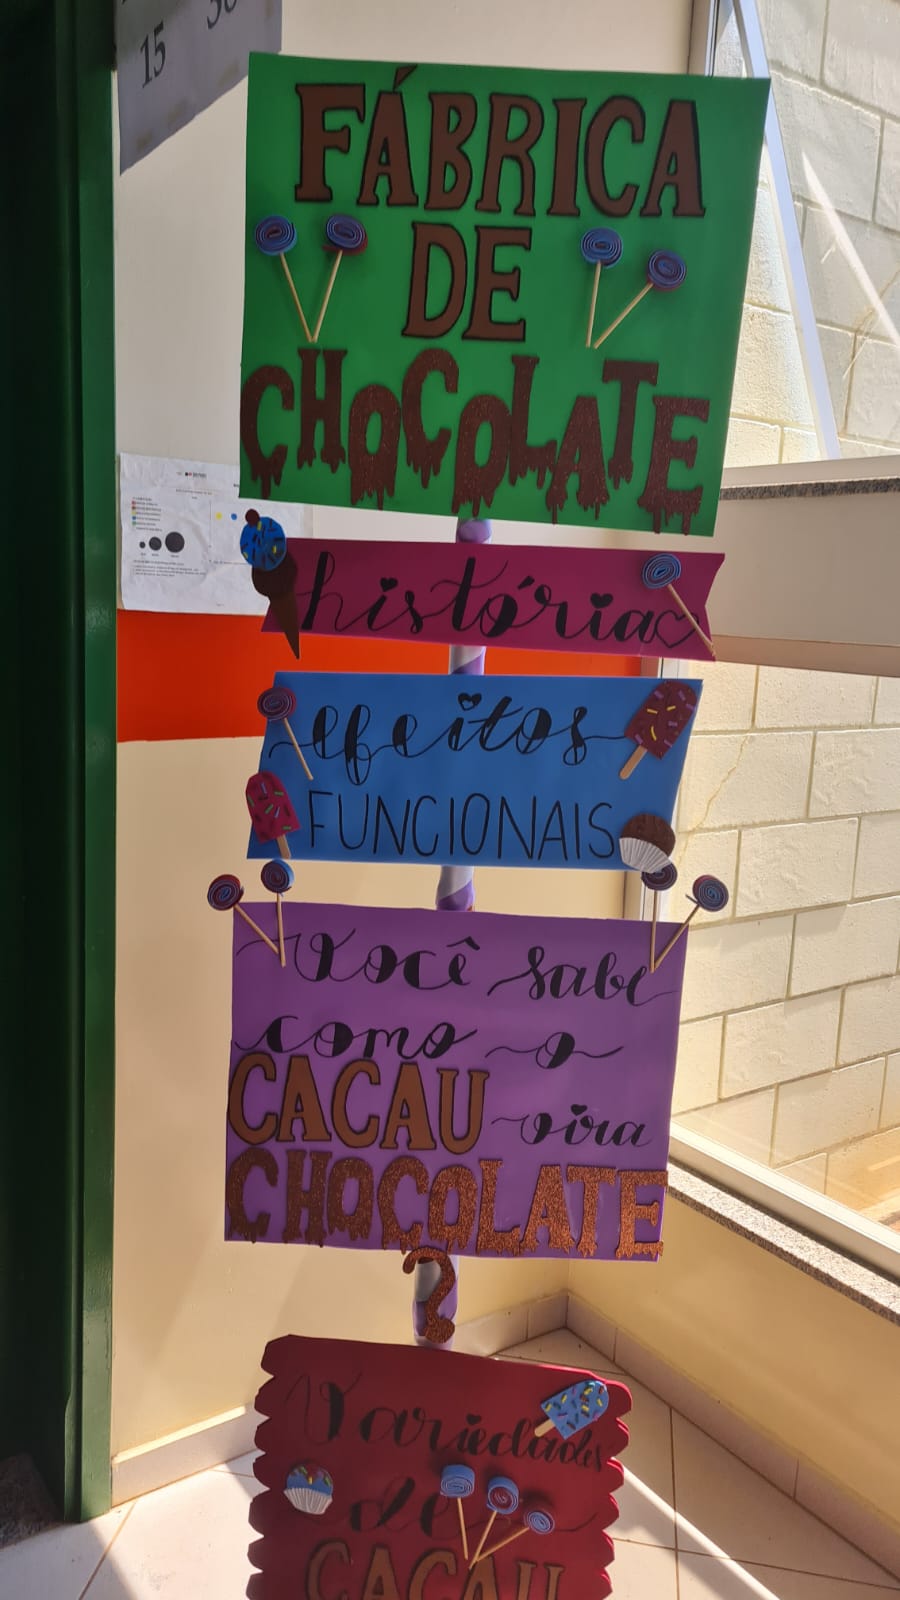 15 30
FÁBRICA
DE
CHOCOLATE
história
efeitos
FUNCIONAIS
Você sabe
como o
CACAU vira
CHOCOLATE
?
Variedades
de
CACAU